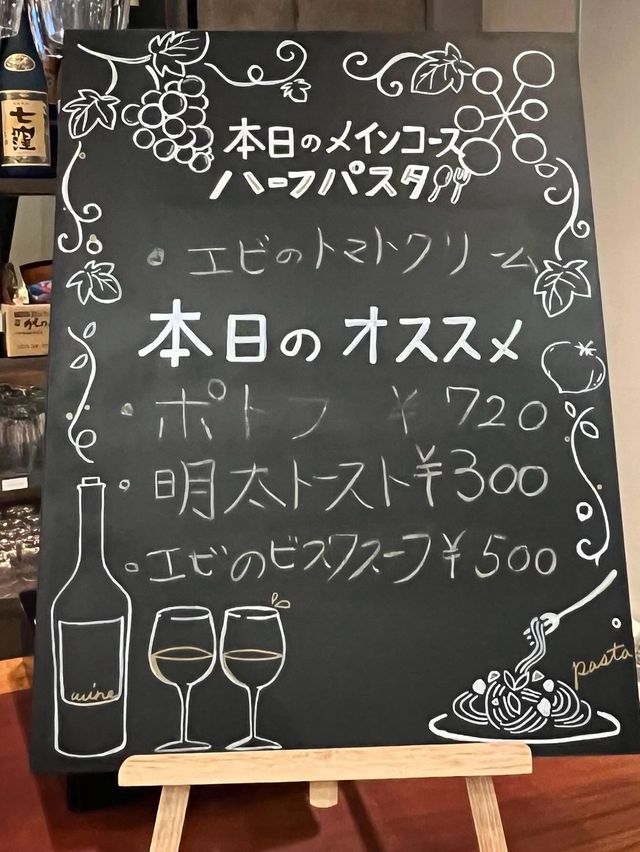 七窪
本日のメインコース
ハーフパスタ
・エビのトマトクリーム
本日のオススメ
・ポトフ ¥720
・明太トースト¥300
・エビのビスクスープ¥500
wine
pasta